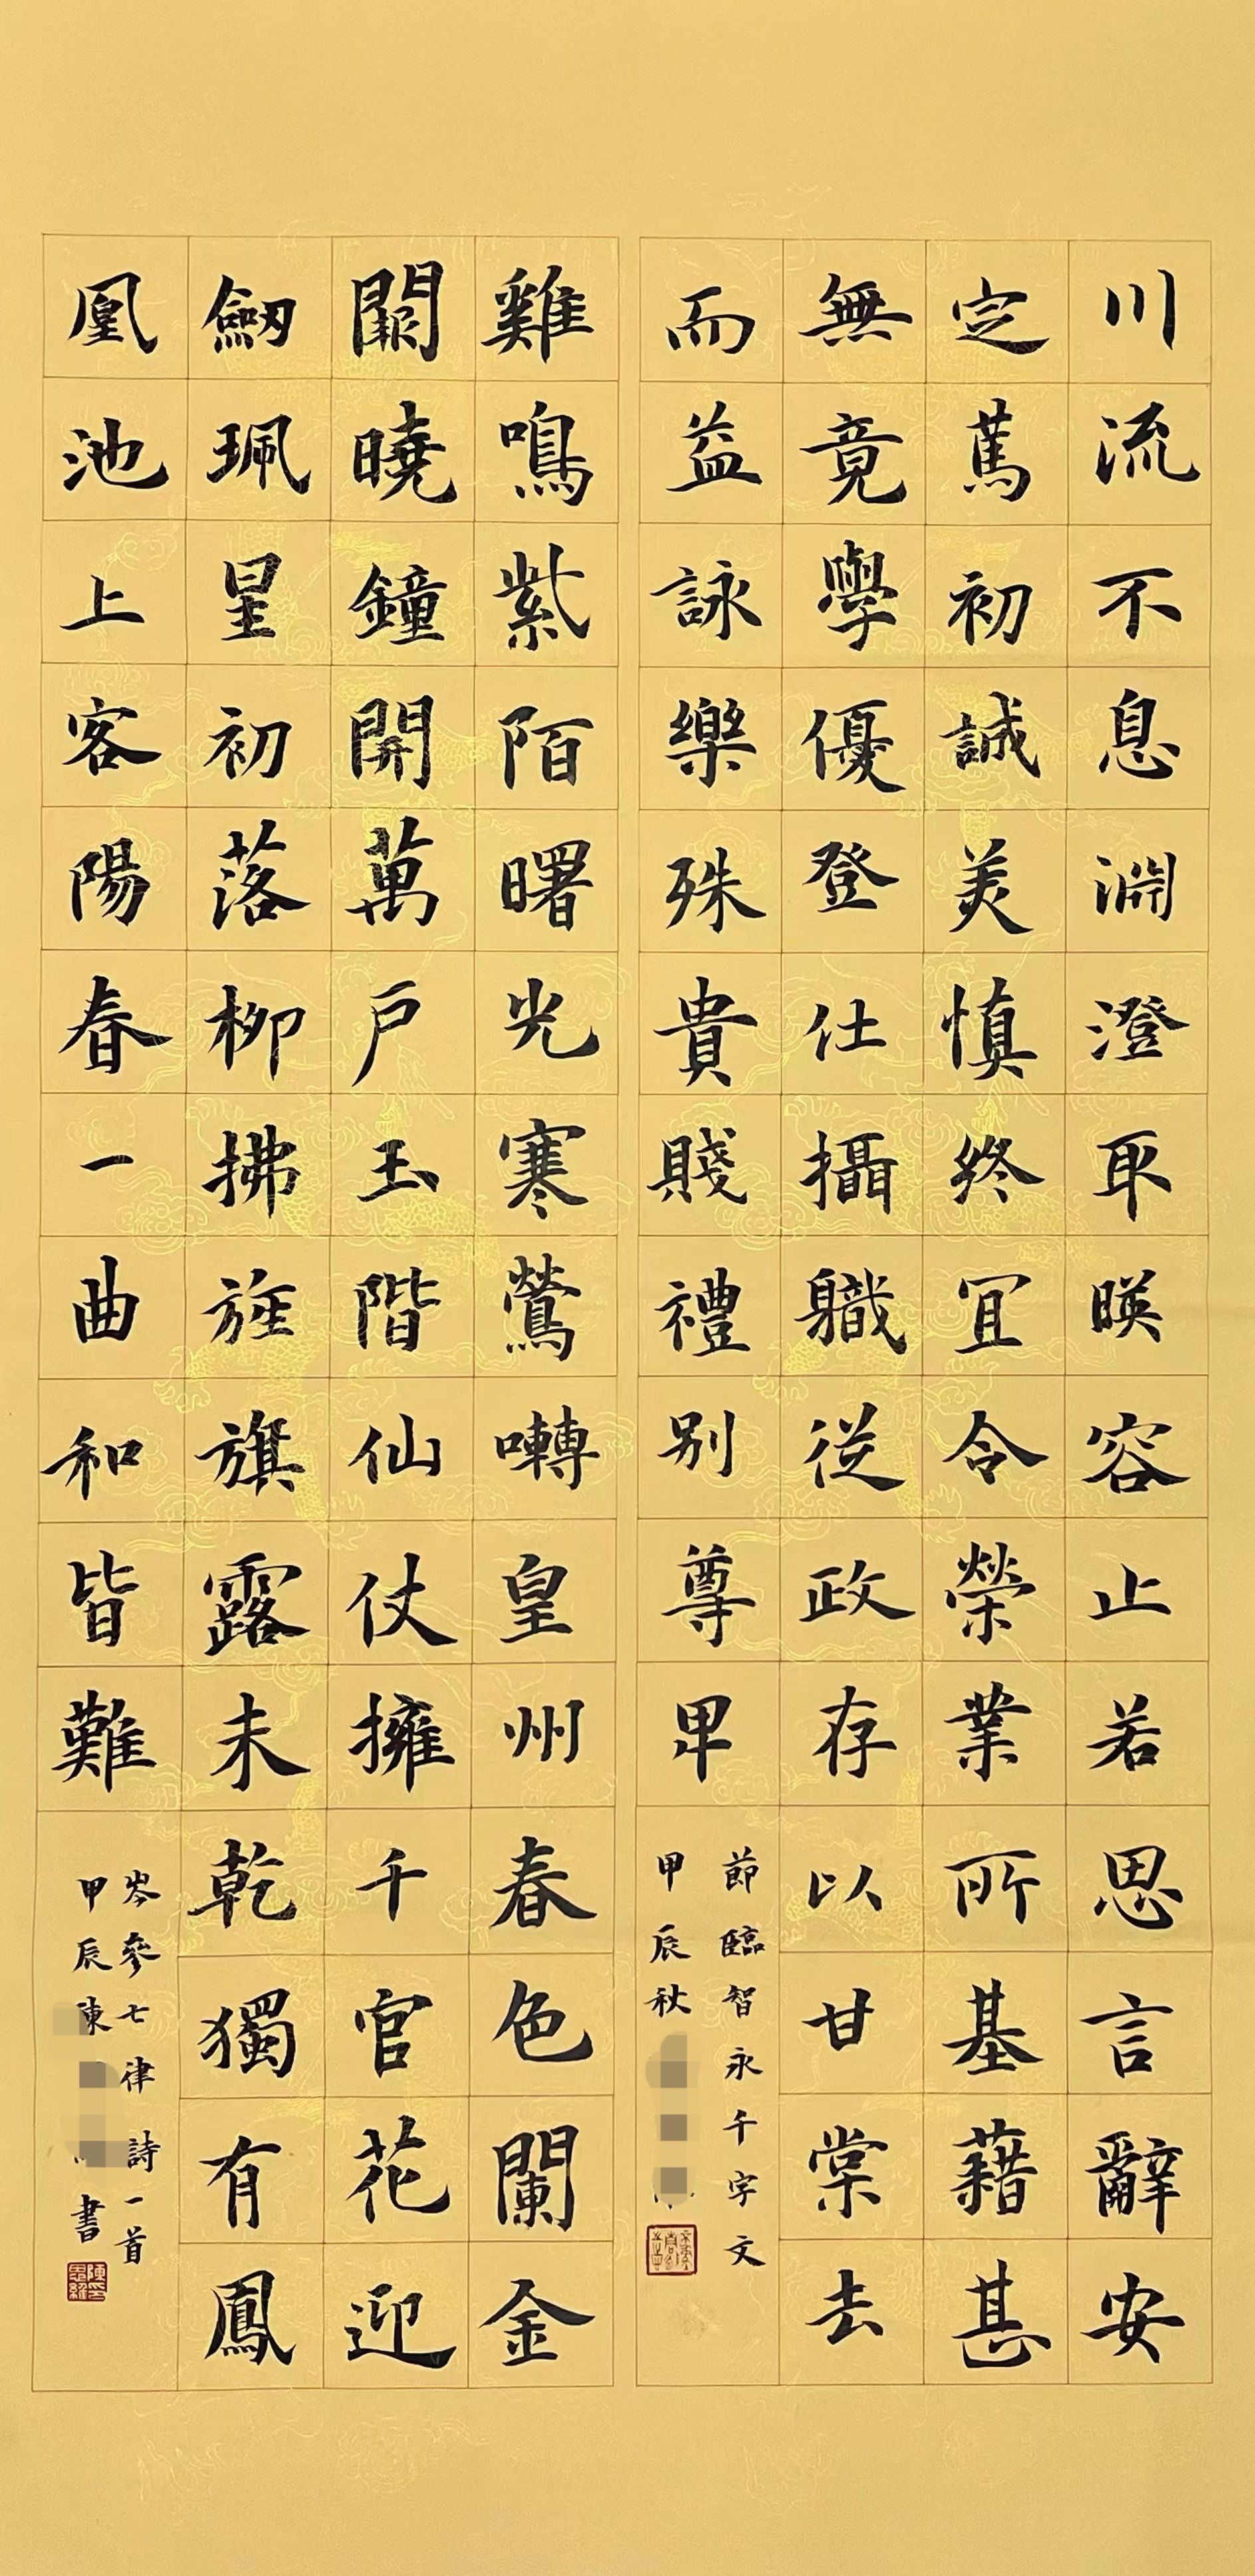 川流不息淵澄取暎容止若思言辭安
定篤初誠美慎終宜令榮業所基藉甚
無竟學優登仕攝職從政存以甘棠去
而益詠樂殊貴賤禮別尊卑
節臨智永千字文
甲辰秋
雞鳴紫陌曙光寒鶯囀皇州春色闌金
闕曉鐘開萬戶玉階仙仗擁千官花迎
劒珮星初落柳拂旌旗露未乾獨有鳳
凰池上客陽春一曲和皆難
岑參七律詩一首
甲辰陳書